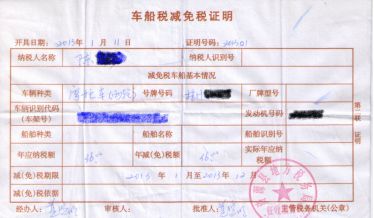 车船税减免税证明
开具日期： 2013 年 1 月 11 日 证明号码：201301
纳税人名称 陈 纳税人识别号
减免税车船基本情况
车辆种类 摩托车 号牌号码 厂牌型号
车辆识别代码（车架号） 发动机号码
船舶种类 船舶名称 船舶识别号
年应纳税额 36.00 年减(免)税额 36.00 实际年应纳税额
减(免)税期限 2013 年 1 月至 2013 年 12 月
减(免)税依据
经办人： 审核人： 批准人： 主管税务机关(公章)
第一联 证明
地方税务